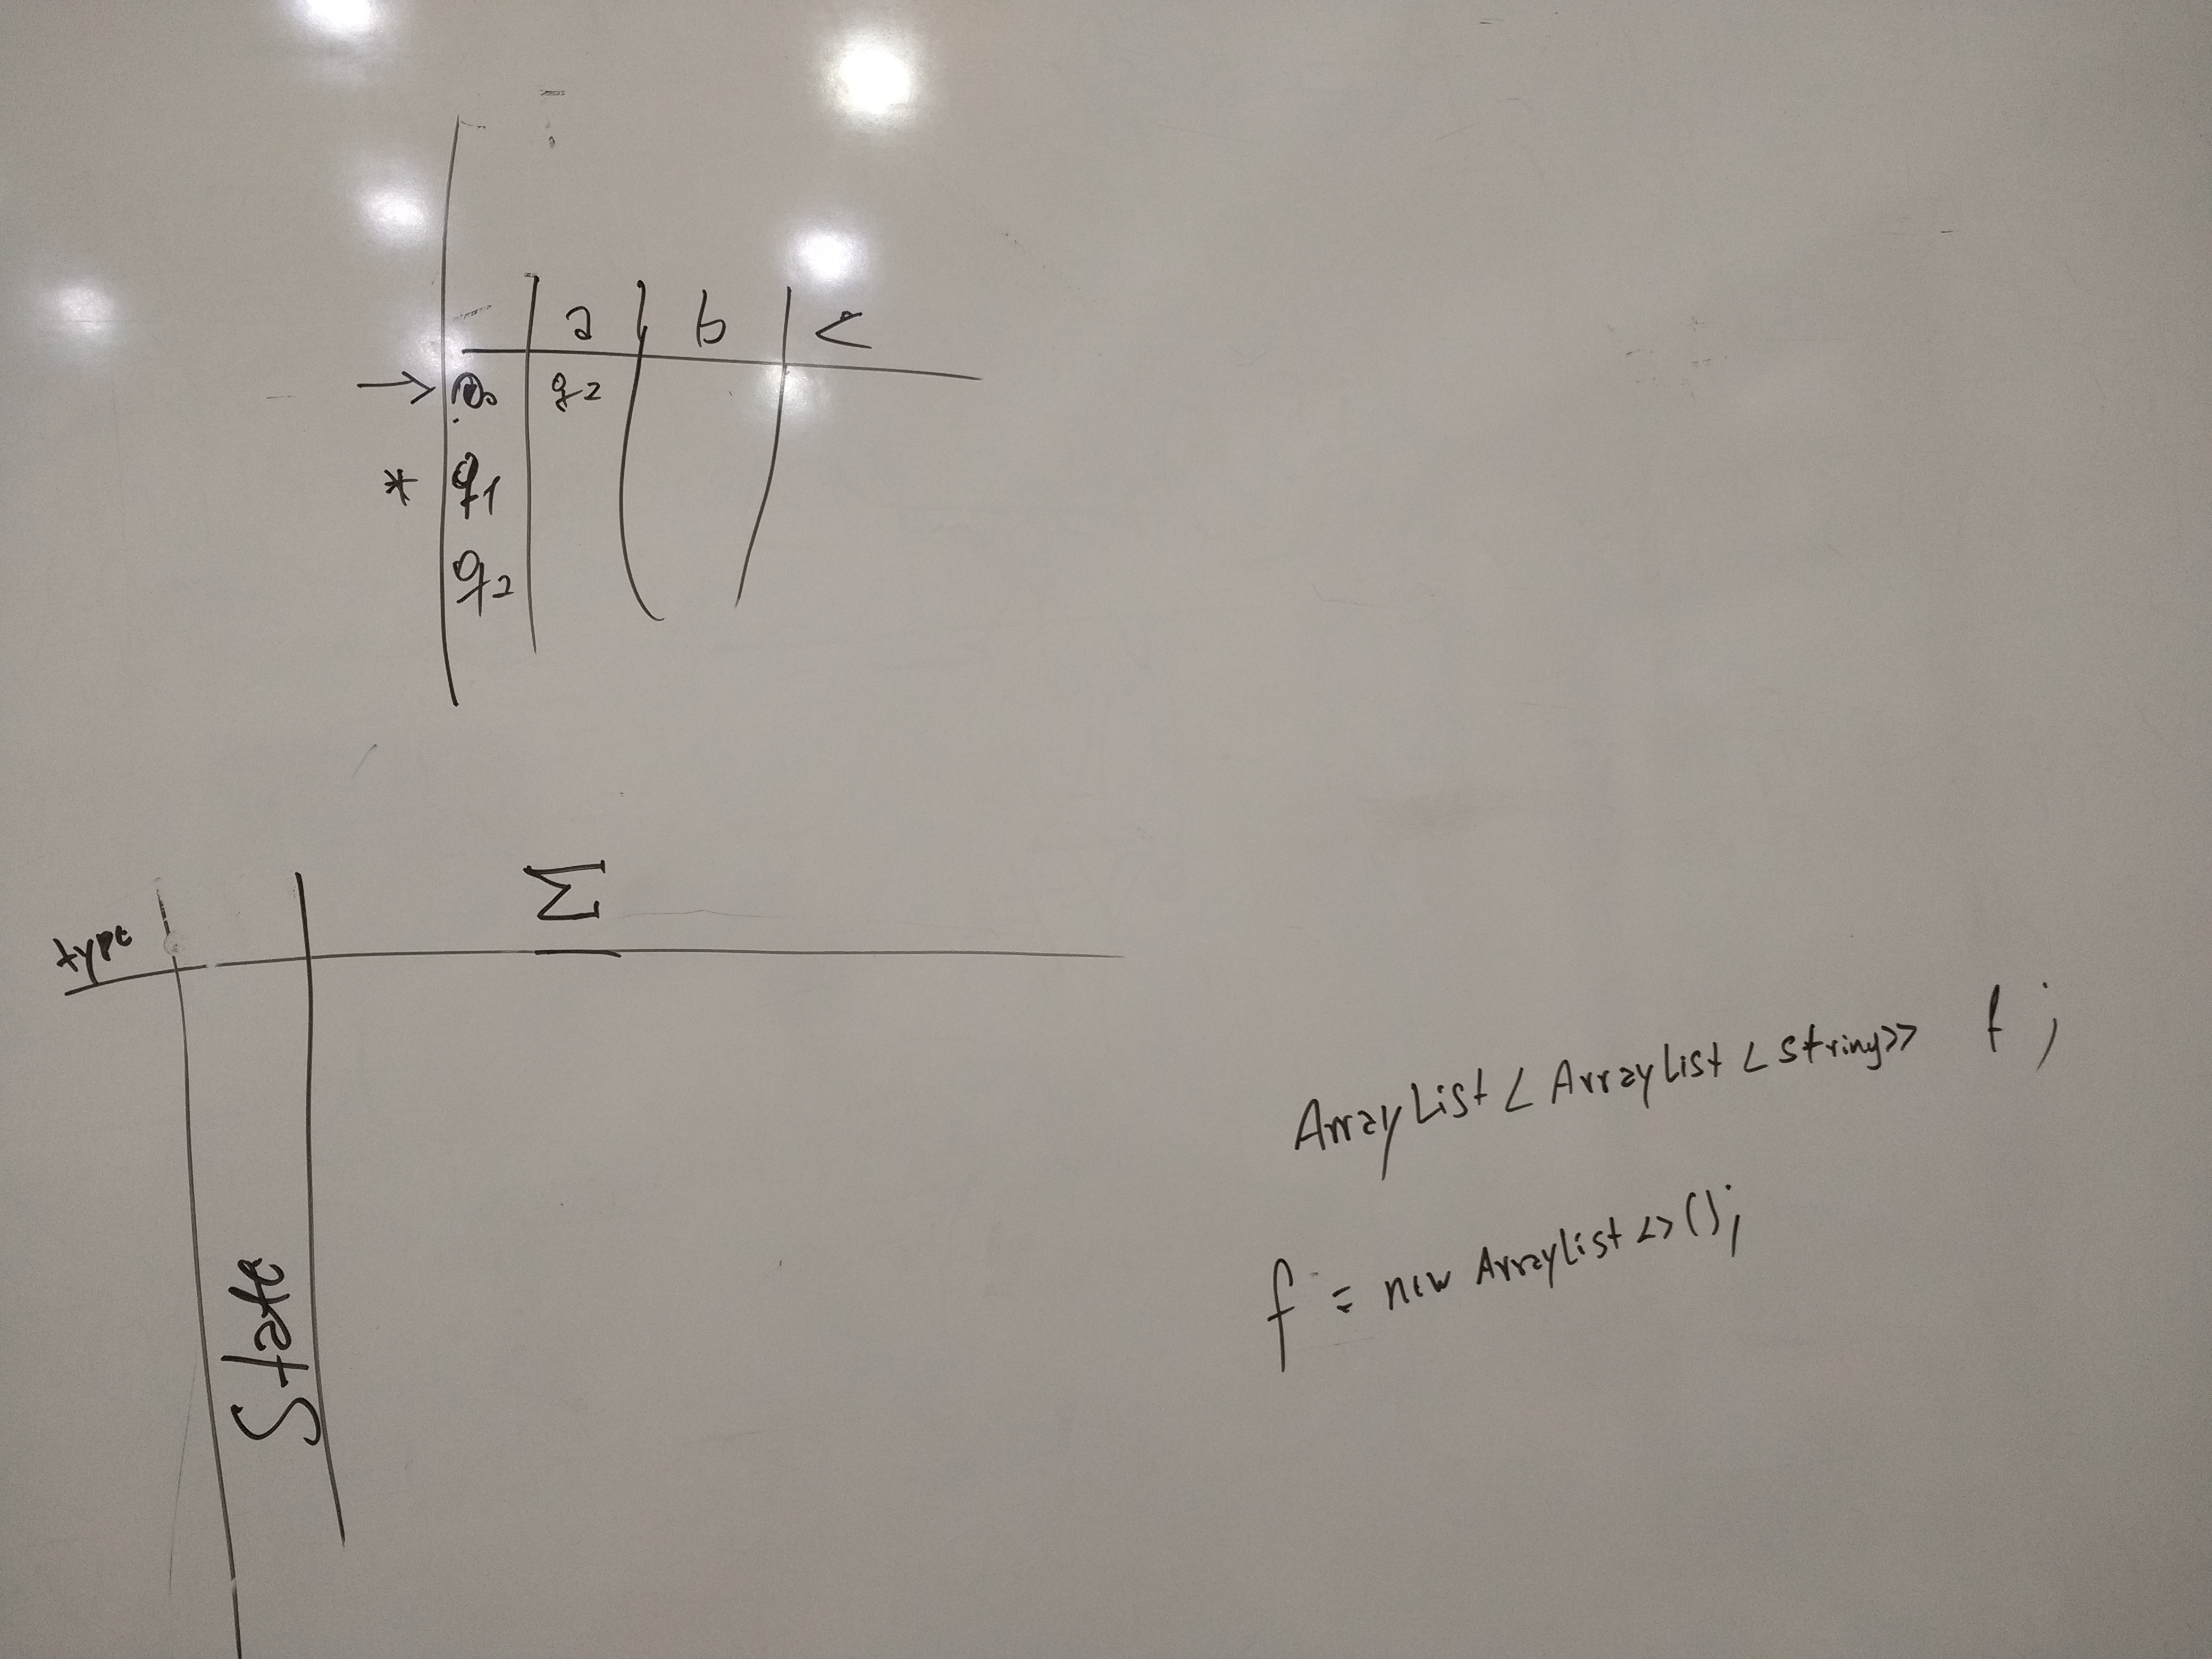 a b c
→ q₂
* q1
q2
Σ
type
State
ArrayList<ArrayList<String>> f ;
f = new ArrayList<>();